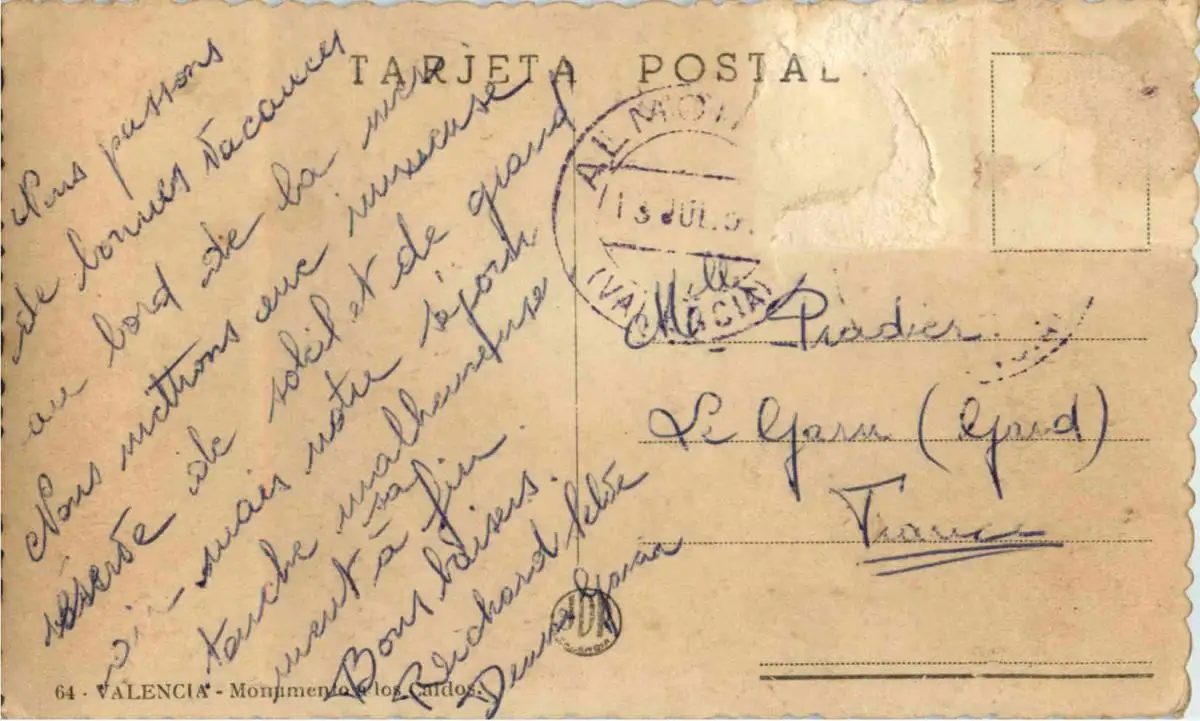 TARJETA POSTAL
Nous passons
de bonnes vacances
au bord de la mer
Nous mettrons une immense
réserve de soleil et de grand
air mais notre séjour
touche malheureuse
ment à sa fin.
Bons baisers.
Richard
Denise
13 JUL.5
(VALENCIA)
Melle Pradier
Le Garn (Gard)
France
64 - VALENCIA - Monumento a los Caídos.